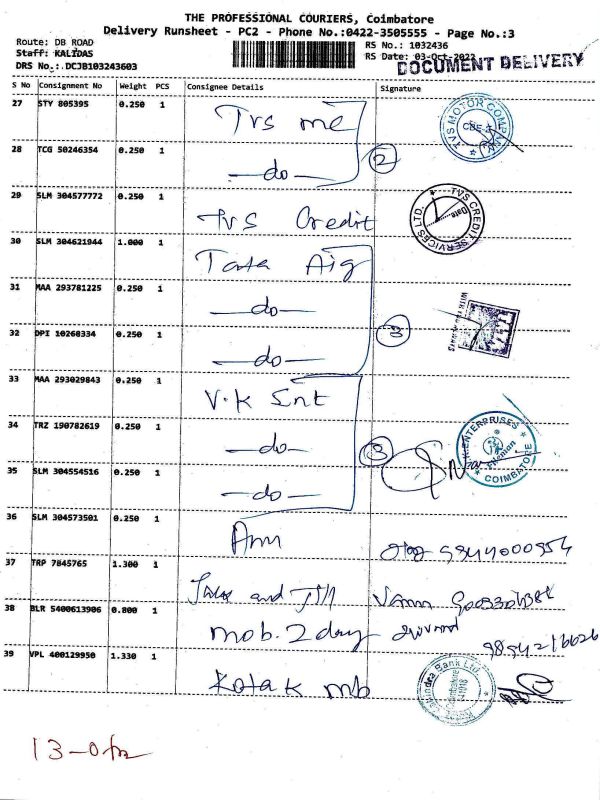 THE PROFESSIONAL COURIERS, Coimbatore
Delivery Runsheet - PC2 - Phone No.:0422-3505555 - Page No.:3
Route: DB ROAD RS No.: 1032436
Staff: KALIDAS RS Date: 03-Oct-2023
DRS No.:.DCJB103243603 DOCUMENT DELIVERY
S No Consignment No Weight PCS Consignee Details Signature
27 STY 805395 0.250 1 Tvs me TVS MOTOR COMPANY
28 TCG 50246354 0.250 1 —do— 2
29 SLM 304577772 0.250 1 Tvs Credit TVS CREDIT SERVICES LTD. Date
30 SLM 304621944 1.000 1 Tata Aig
31 MAA 293781225 0.250 1 —do—
32 DPI 10268334 0.250 1 —do— 3
33 MAA 293029843 0.250 1 V.K Ent
34 TRZ 190782619 0.250 1 —do— 3 V.K. ENTERPRISES COIMBATORE
35 SLM 304554516 0.250 1 —do—
36 SLM 304573501 0.250 1
37 TRP 7845765 1.300 1 and
38 BLR 5400613906 0.800 1 mob. 2 day
39 VPL 400129950 1.330 1 Kotak mb Mahindra Bank Ltd. Coimbatore